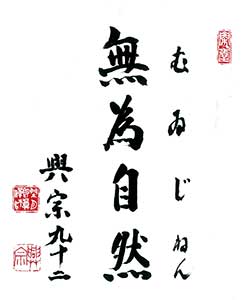 むゐじねん
無為自然
興宗九十二